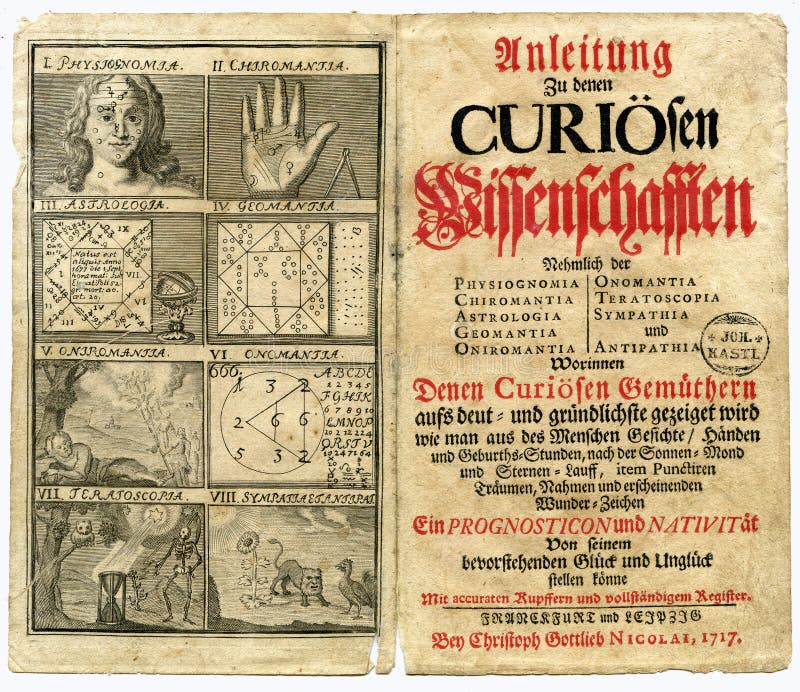 I. PHYSIOGNOMIA.
II. CHIROMANTIA.
III. ASTROLOGIA.
IV. GEOMANTIA.
IX
VII
VI
II
III
Natus est
aliquis Anno
1677 die 1 Sept.
V. ONIROMANTIA.
VI. ONOMANTIA.
666.
1 3 2
2 6 6
3 2
A B C D E
F G H I K
L M N O P
Q R S T V
VII. TERATOSCOPIA.
VIII. SYMPATIA ET ANTIPAT.
Anleitung
Zu denen
CURIÖsen
Wissenschafften
Nehmlich der
PHYSIOGNOMIA
CHIROMANTIA
ASTROLOGIA
GEOMANTIA
ONIROMANTIA
ONOMANTIA
TERATOSCOPIA
SYMPATHIA
und
ANTIPATHIA
JOH.
KASTL
Worinnen
Denen Curiösen Gemüthern
aufs deut- und gründlichste gezeiget wird
wie man aus des Menschen Gesichte/ Händen
und Geburths-Stunden, nach der Sonnen- Mond
und Sternen-Lauff, item Punctiren
Träumen, Nahmen und erscheinenden
Wunder-Zeichen
Ein PROGNOSTICON und NATIVITät
Von seinem
bevorstehenden Glück und Unglück
stellen könne
Mit accuraten Kupffern und vollständigem Register.
FRANCKFURT und LEIPZIG
Bey Christoph Gottlieb NICOLAI, 1717.